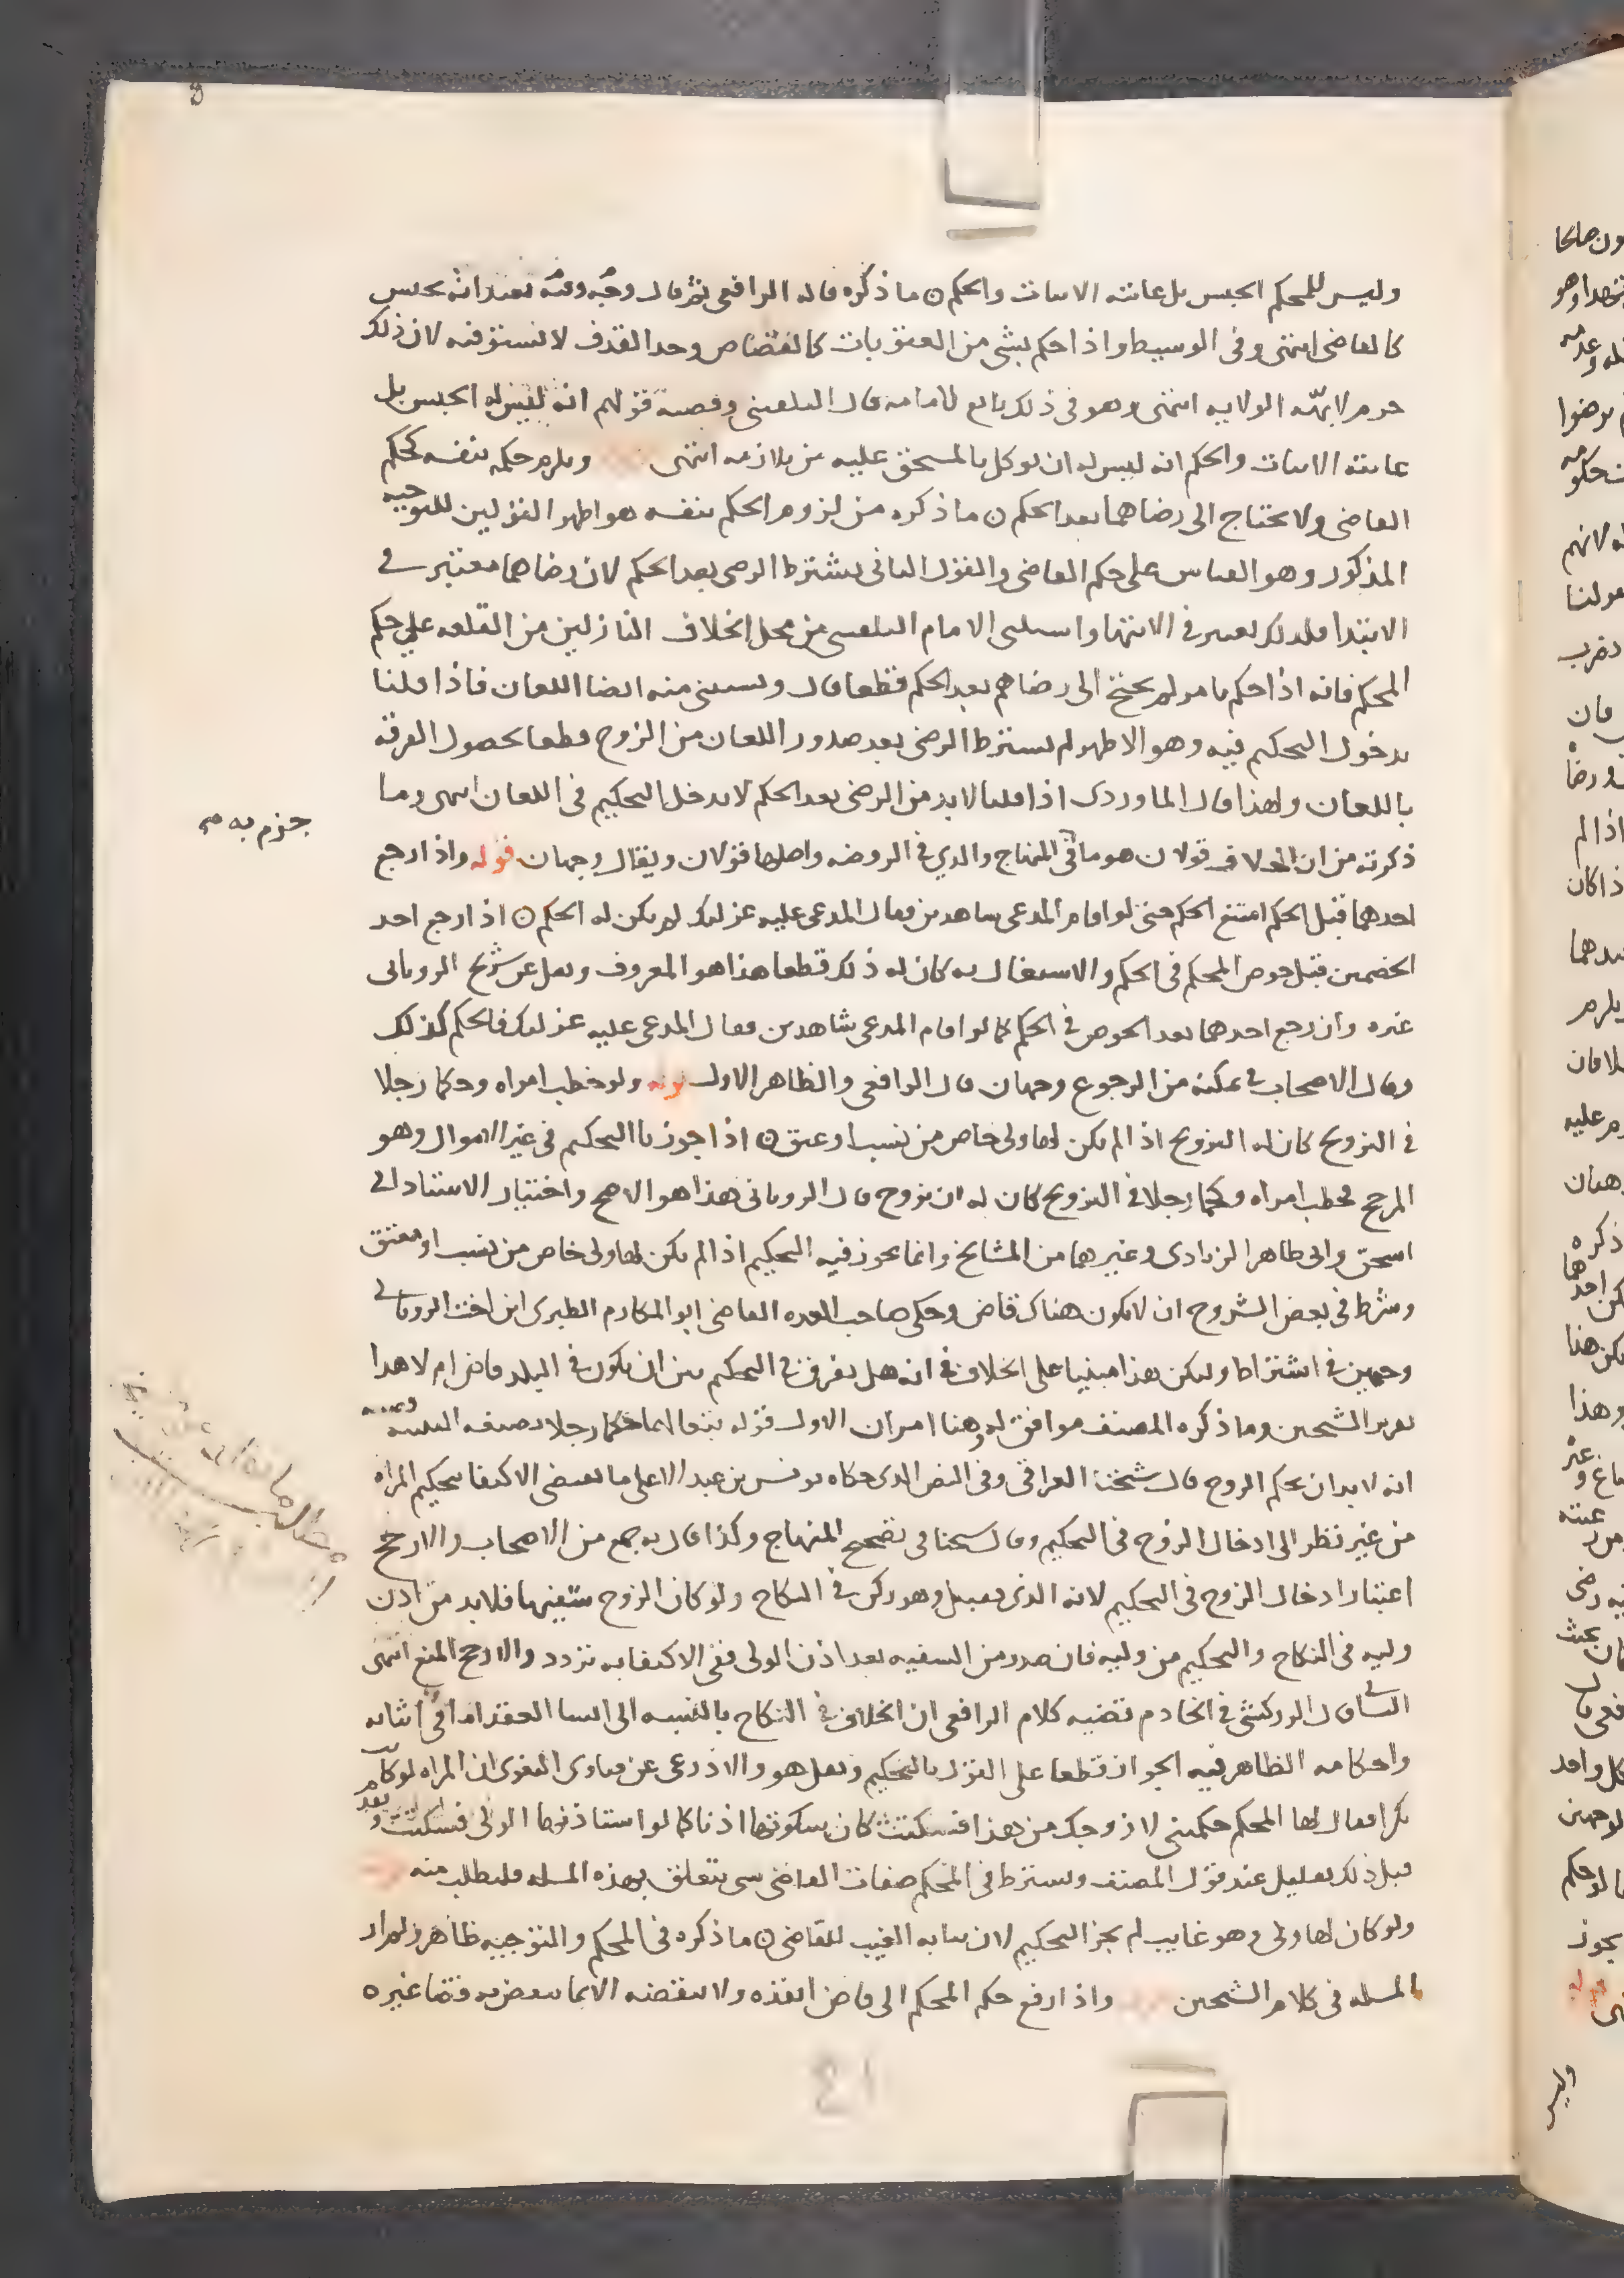 وليس للمحكم الحبس بل غايته الاثبات والحكم ن ما ذكره قاله الرافعي ثم قال وجه وعنه بعيد انه يحبس
كالقاضي انتهى وفي الوسيط واذا حكم بشي من العقوبات كالقصاص وحد القذف لا نستوفيه لان ذلك
خرم لابهة الولايه انتهى وهو في ذلك تابع لامامه قال البلقيني وقضية قولهم انه ليس له الحبس بل
غايته الاثبات والحكم انه ليس له ان يوكل بالمستحق عليه من يلازمه انتهى ويلزم حكمه بنفسه كحكم
القاضي ولا يحتاج الى رضاهما بعد الحكم ن ما ذكره من لزوم الحكم بنفسه هو اظهر القولين للتوجيه
المذكور وهو القياس على حكم القاضي والقول الثاني يشترط الرضى بعد الحكم لان رضاهما معتبر في
الابتدا فلذلك يعتبر في الانتها واستثنى الامام البلقيني من محل الخلاف النازلين من القلعه على حكم
المحكم فانه اذا حكم بامر لم يحتج الى رضاهم بعد الحكم قطعا قال ويستثنى منه ايضا اللعان فاذا قلنا
بدخول التحكيم فيه وهو الاظهر لم يشترط الرضى بعد صدور اللعان من الزوج قطعا لحصول الفرقه
باللعان ولهذا قال الماوردي اذا قلنا لابد من الرضى بعد الحكم لا يدخل التحكيم في اللعان انتهى وما
جزم به
ذكرته من ان الخلاف قولان هو ما في المنهاج والذي في الروضه واصلها قولان ويقال وجهان قوله واذا رجع
احدهما قبل الحكم امتنع الحكم حتى لو اقام المدعي شاهدين فقال المدعى عليه عزلتك لم يكن له الحكم ن اذا رجع احد
الخصمين قبل خوض المحكم في الحكم والاشتغال به كان له ذلك قطعا هذا هو المعروف ونقل عن شريح الروياني
غيره وان رجع احدهما بعد الخوض في الحكم كما لو اقام المدعي شاهدين فقال المدعى عليه عزلتك فالحكم كذلك
وقال الاصحاب في تمكنه من الرجوع وجهان قال الرافعي والظاهر الاول قوله ولو خطب امراه وحكما رجلا
في التزويج كان له التزويج اذا لم يكن لها ولي خاص من نسب او عتق ن اذا جوزنا التحكيم في غير الاموال وهو
المرجح فخطب امراه وحكما رجلا في التزويج كان له ان يزوج قال الروياني هذا هو الاصح واختيار الاستاد ابي
اسحق وابي طاهر الزيادي وغيرهما من المشايخ وانما يجوز فيه التحكيم اذا لم يكن لها ولي خاص من نسب او معتق
وشرط في بعض الشروح ان لا يكون هناك قاض وحكى صاحب العده القاضي ابو المكارم الطبري ابن اخت الروياني
وجهين في اشتراطه وليكن هذا مبنيا على الخلاف في انه هل يفرق في التحكيم بين ان يكون في البلد قاض ام لا هذا
تقرير الشيخين وما ذكره المصنف موافق له وهنا امران الاول قوله تبعا لهما حكما رجلا بصيغه التثنيه وقضيته
انه لا بد ان يحكم الزوج قال شيخنا العراقي وفي النص الذي حكاه يونس بن عبد الاعلى ما يقتضي الاكتفا بتحكيم المراه
من غير نظر الى ادخال الزوج في التحكيم وقال شيخنا في تصحيح المنهاج وكذا قال به جمع من الاصحاب والارجح
اعتبار ادخال الزوج في التحكيم لانه الذي يقبل وهو ركن في النكاح ولو كان الزوج سفيها فلا بد من اذن
وليه في النكاح والتحكيم من وليه فان صدر من السفيه بعد اذن الولي ففي الاكتفا به تردد والارجح المنع انتهى
الثاني قال الزركشي في الخادم قضيه كلام الرافعي ان الخلاف في النكاح بالنسبه الى انشا العقد اما في اثباته
واحكامه الظاهر فيه الجواز قطعا على القول بالتحكيم ونقل هو والاذرعي عن فتاوى البغوي ان المراه لو كانت
بكرا فقال لها المحكم حكمتني لازوجك من هذا فسكتت كان سكوتها اذنا كما لو استاذنها الولي فسكتت وتقدم
قبل ذلك بقليل عند قول المصنف ويشترط في المحكم صفات القاضي شي يتعلق بهذه المسله فليطلب منه
ولو كان لها ولي وهو غايب لم يجز التحكيم لان نيابه الغيب للقاضي ن ما ذكره في المحكم والتوجيه ظاهر ولم ار
المسله في كلام الشيخين واذا رفع حكم المحكم الى قاض انفذه ولا ينقضه الا بما ينقض به قضا غيره